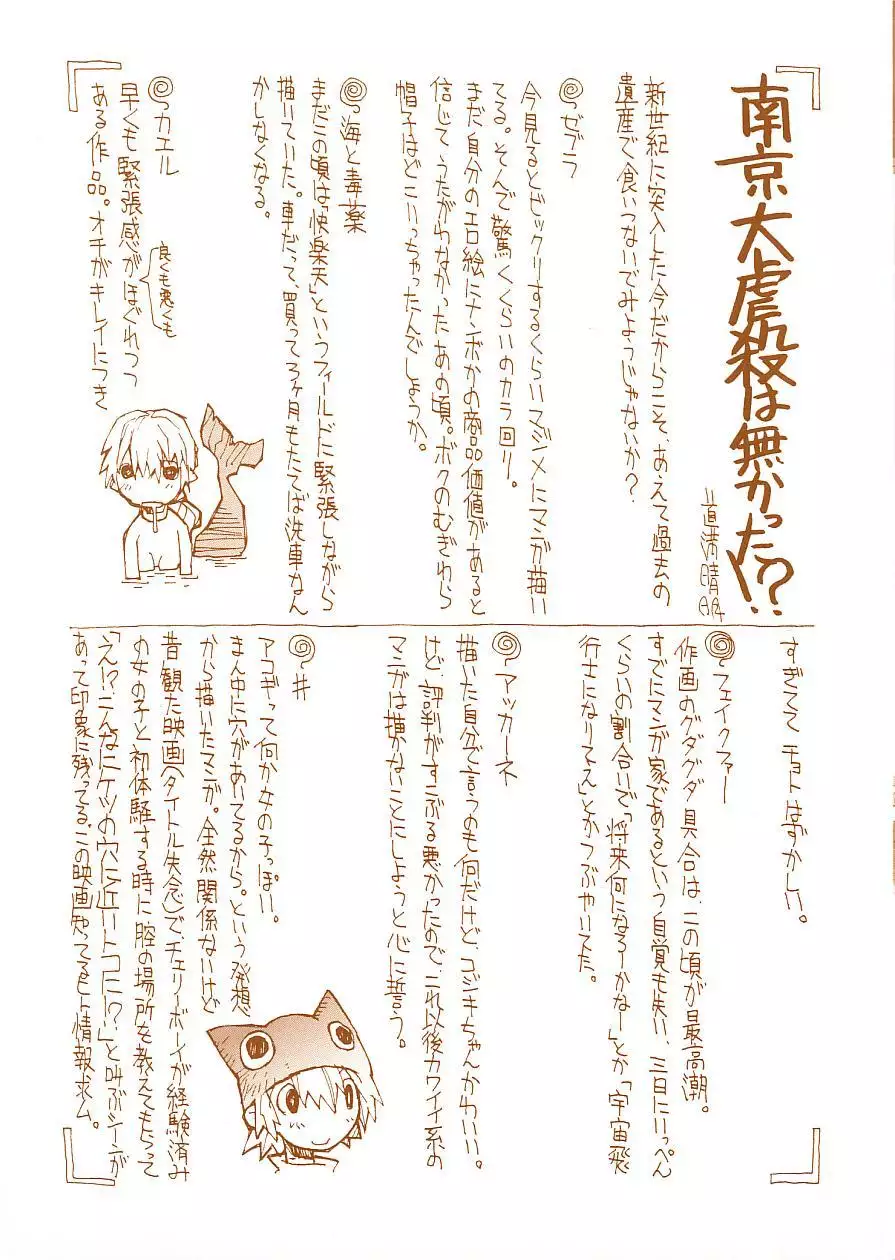 南京大虐殺は無かった!?
道満晴明
新世紀に突入した今だからこそ、あえて過去の
遺産で食いつないでみようじゃないか?
ゼブラ
今見るとビックリするくらいマジメにマンガ描い
てる。そんで驚くくらいのカラ回り。
まだ自分のエロ絵にナンボかの商品価値があると
信じてうたがわなかったあの頃。ボクのむぎわら
帽子はどこいっちゃったんでしょうか。
海と毒薬
まだこの頃は「快楽天」というフィールドに緊張しながら
描いていた。車だって、買って3ヶ月もたてば洗車なん
かしなくなる。
カエル
早くも緊張感がほぐれつつ
良くも悪くも
ある作品。オチがキレイにつき
すぎてて チョト はずかしい。
フェイクファー
作画のグダグダ具合は、この頃が最高潮。
すでにマンガ家であるという自覚も失い、三日にいっぺん
くらいの割合いで「将来何になろーかなー」とか「宇宙飛
行士になりてえ」とかつぶやいてた。
アッカーネ
描いた自分で言うのも何だけど、コジキちゃんかわいい。
けど、評判がすこぶる悪かったので、これ以後カワイイ系の
マンガは描かないことにしようと心に誓う。
井
アコギって何か女の子っぽい。
まん中に穴があいてるから。という発想
から描いたマンガ。全然関係ないけど
昔観た映画(タイトル失念)で、チェリーボーイが経験済み
の女の子と初体験する時に腟の場所を教えてもらって
「え!?こんなにケツの穴に近いトコに!?」と叫ぶシーンが
あって印象に残ってる、この映画知ってるヒト情報求ム。